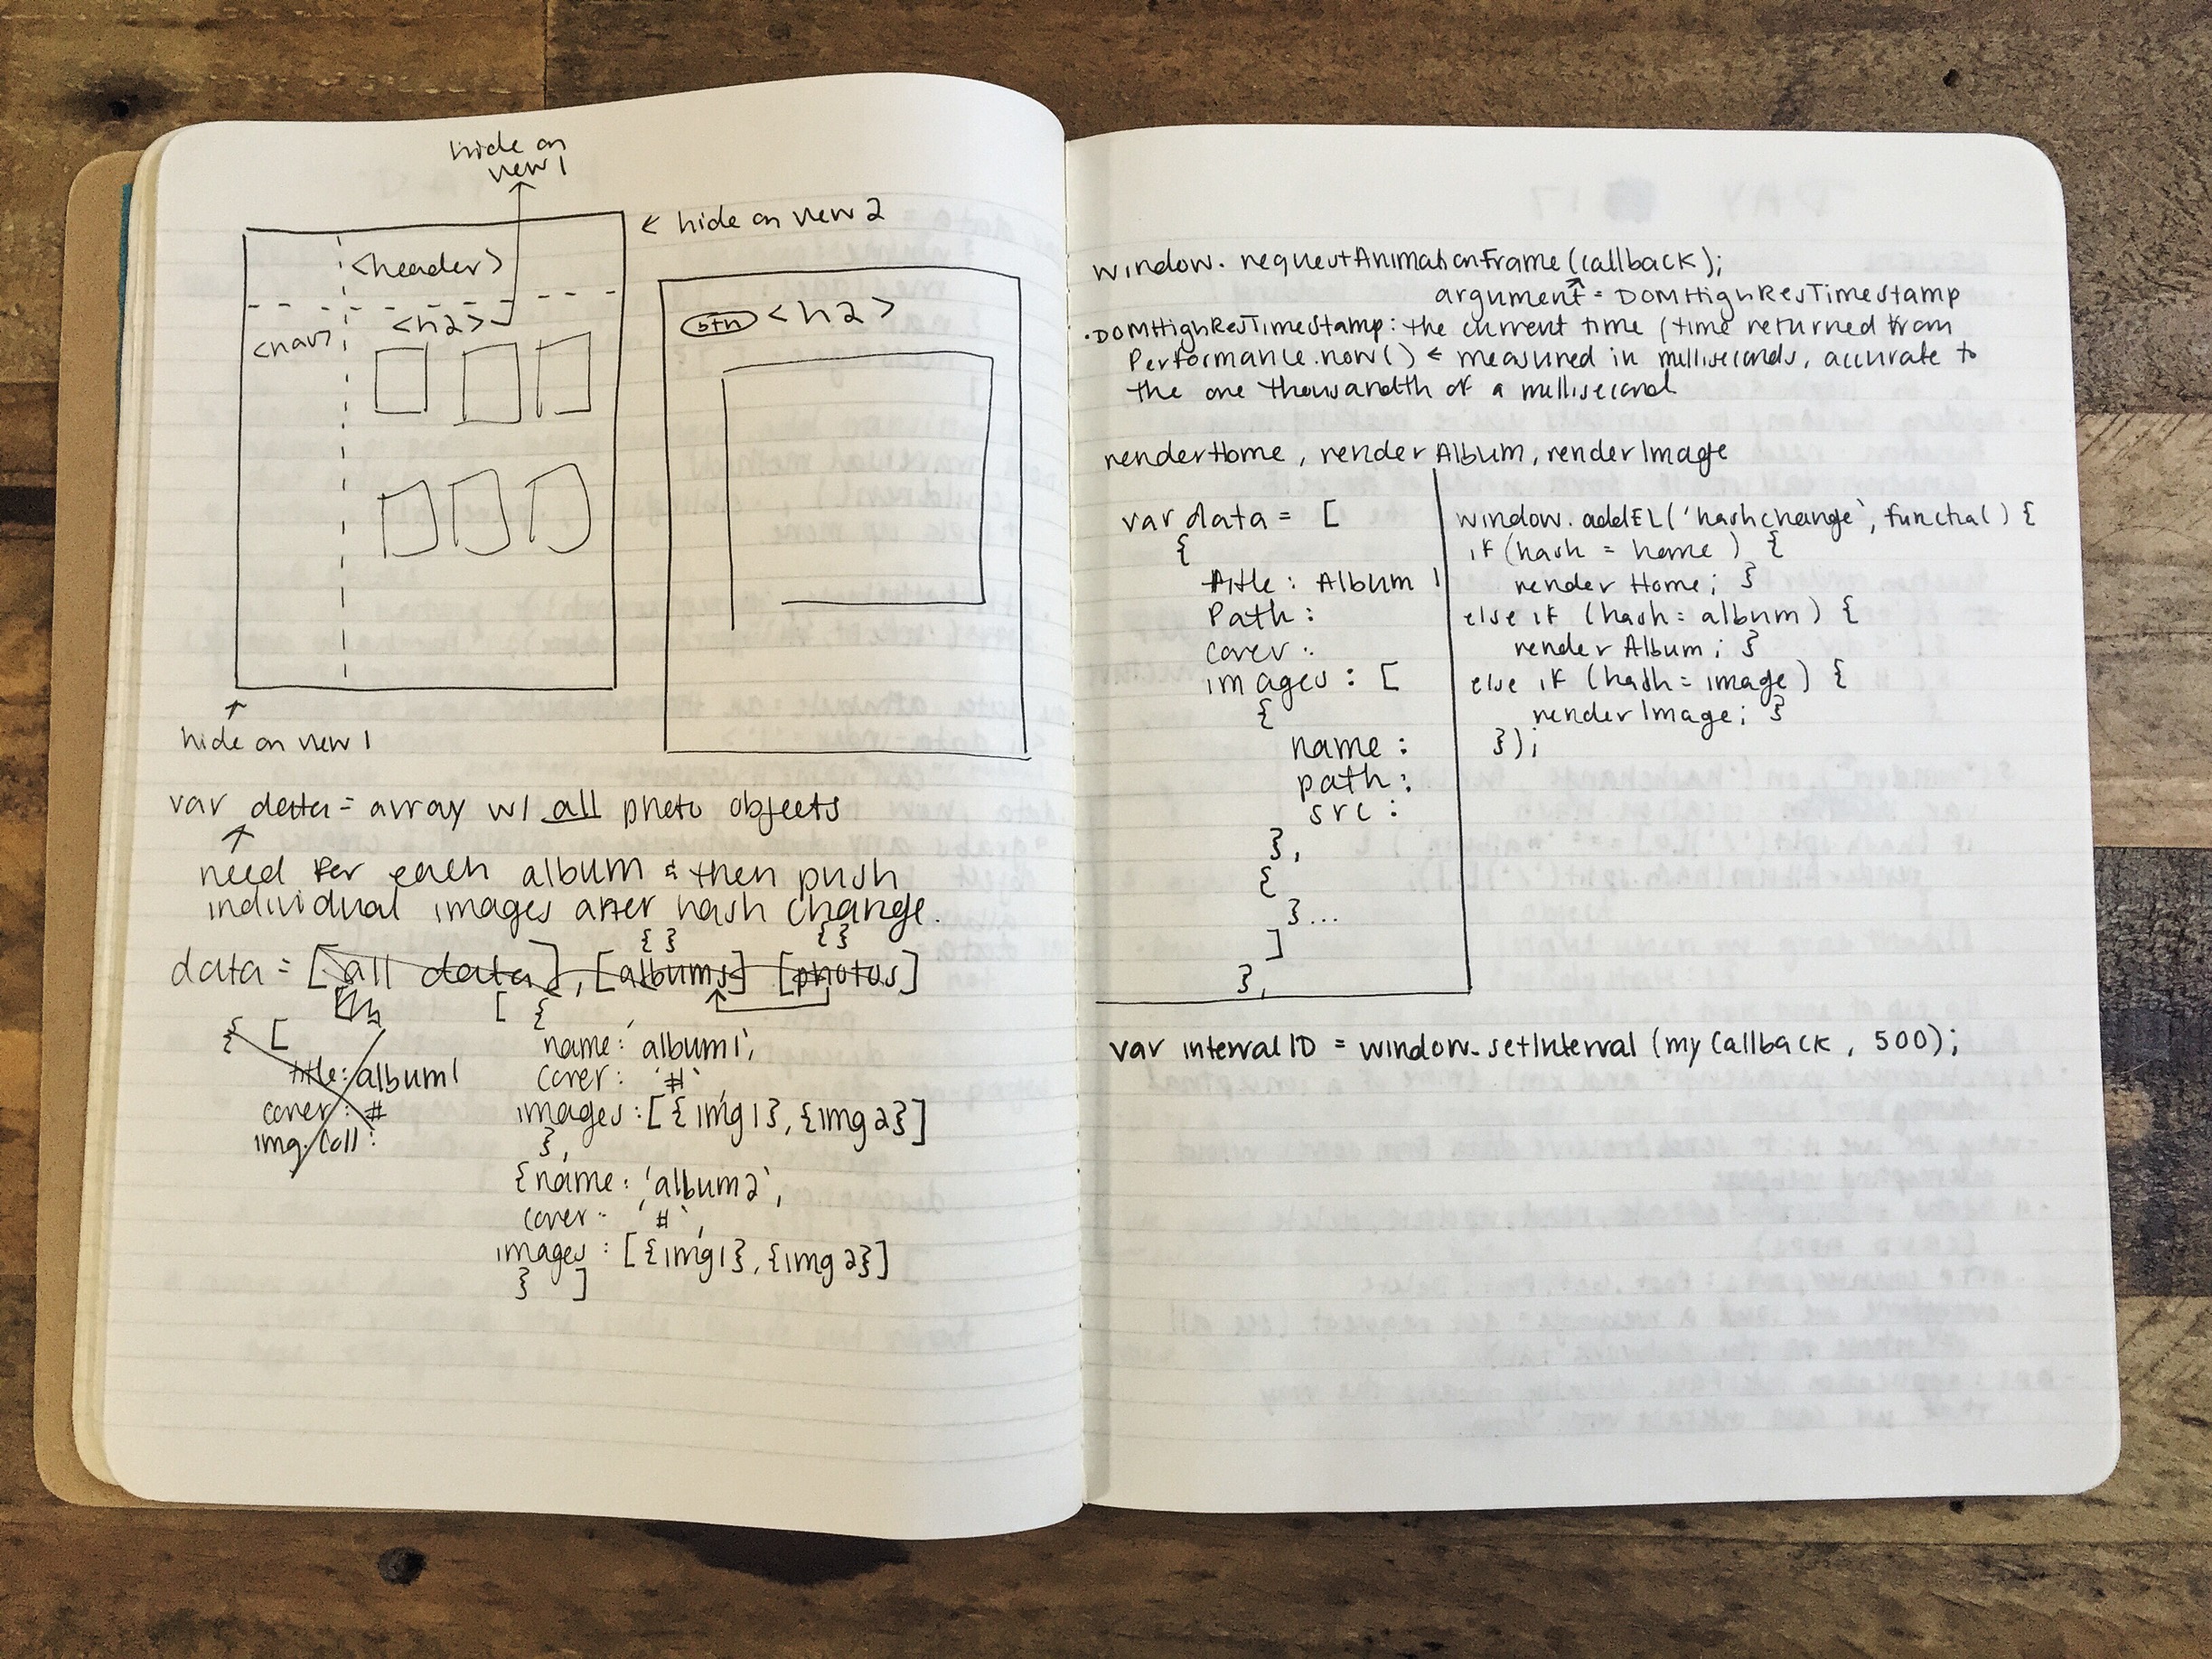 hide on
view 1
← hide on view 2
<header>
<h2>
<nav>
btn <h2>
hide on view 1
var data = array w/ all photo objects
need for each album & then push
individual images after hash change.
{ } { }
data = [all data], [albums] [photos]
{ [
title: album1
cover: #
img.coll:
[ {
name: 'album1',
cover: '#',
images: [{img1}, {img2}]
},
{name: 'album2',
cover: '#',
images: [{img1}, {img2}]
} ]
window.requestAnimationFrame(callback);
argument = DOMHighResTimestamp
·DOMHighResTimeStamp: the current time (time returned from
Performance.now() ← measured in milliseconds, accurate to
the one thousandth of a millisecond
renderHome, renderAlbum, renderImage
var data = [
{
title: Album 1
Path:
cover:
images: [
{
name:
path:
src:
},
{
}...
]
},
window.addEL('hashchange', functial) {
if (hash = home) {
render Home; }
else if (hash = album) {
render Album; }
else if (hash = image) {
render Image; }
});
var intervalID = window.setInterval(myCallback, 500);